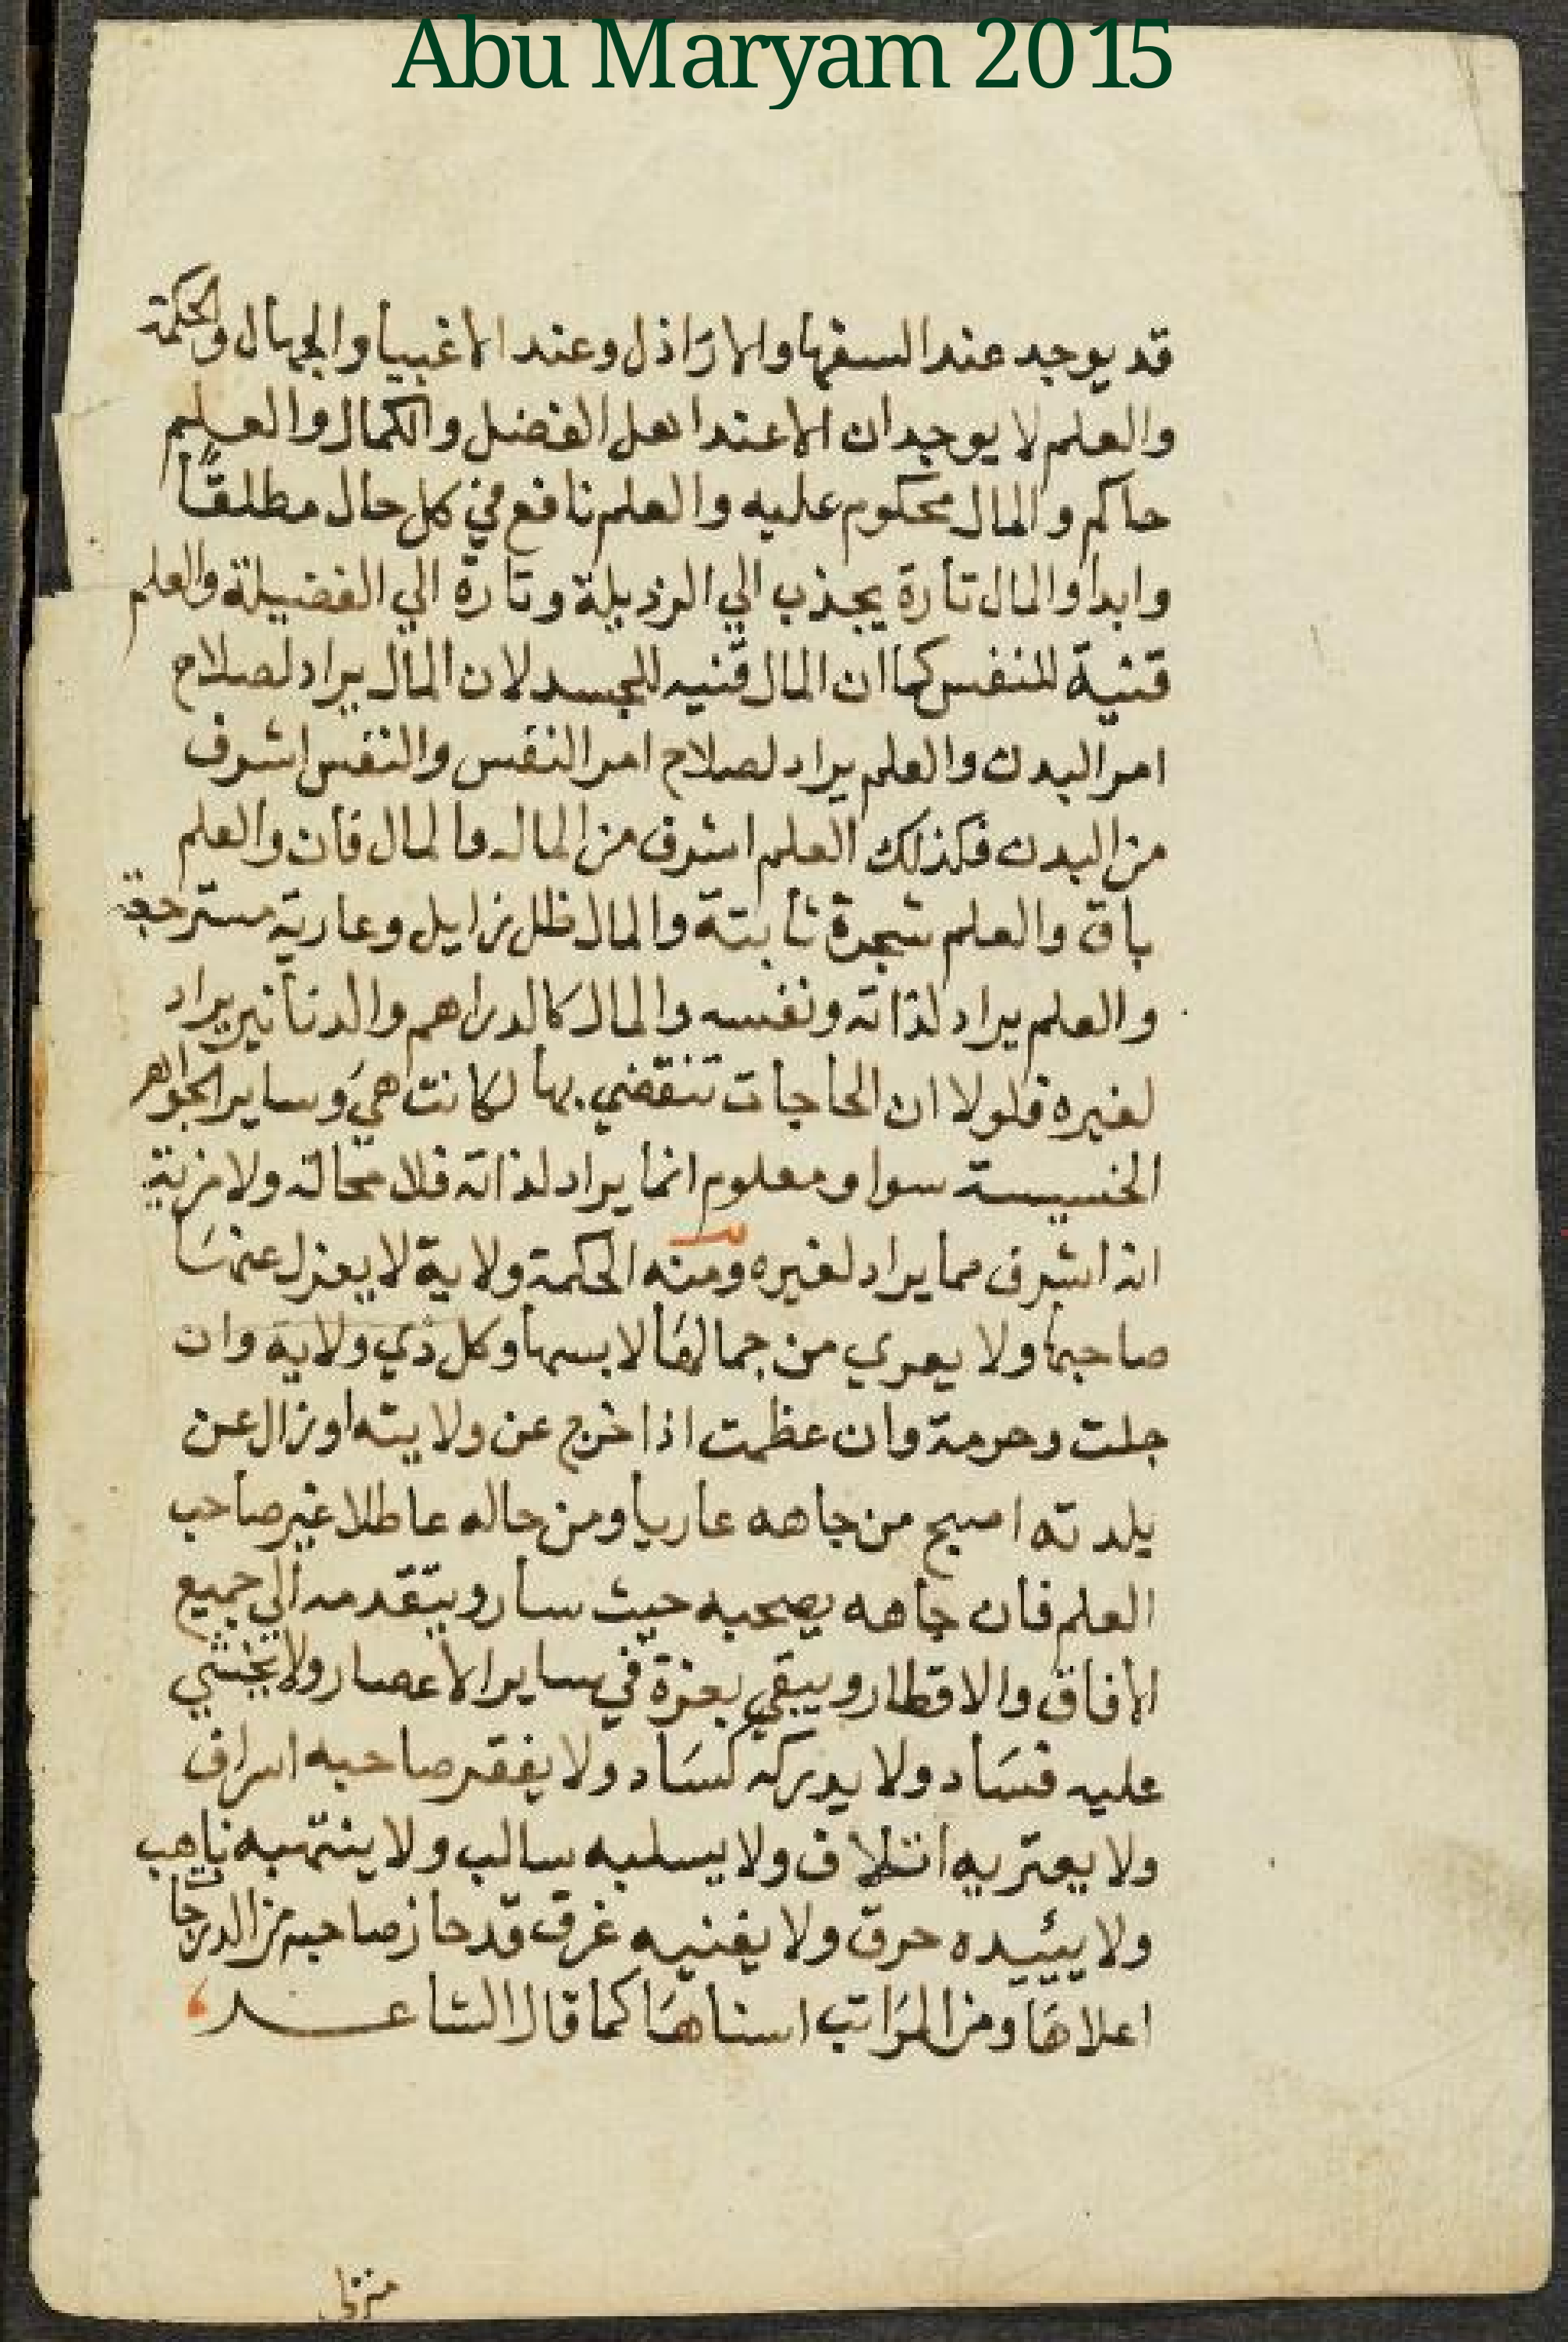 Abu Maryam 2015
قد يوجد عند السفها والاراذل وعند الاغبيا والجهال والحكمة
والعلم لا يوجدان الا عند اهل الفضل والكمال والعلم
حاكم والمال محكوم عليه والعلم نافع في كل حال مطلقًا
وابدا والمال تارة يجذب الي الرذيلة وتارة الي الفضيلة والعلم
قنية للنفس كما ان المال قنيه للجسد لان المال يراد لصلاح
امر البدن والعلم يراد لصلاح امر النفس والنفس اشرف
من البدن فكذلك العلم اشرف من المال والمال فان والعلم
باق والعلم شجرة ثابتة والمال ظل زايل وعارية
والعلم يراد لذاته ونفسه والمال كالدراهم والدنانير يراد
لغيره فلولا ان الحاجات تنقضي بها لكانت هي وساير الجواهر
الخسيسة سوا ومعلوم انما يراد لذاته فلا محالة ولا مزية
انه اشرف مما يراد لغيره ومنه الحكمة ولاية لا يعزل عنها
صاحبها ولا يعري من جمالها لابسها وكل ذي ولاية وان
جلت وحرمة وان عظمت اذا خرج عن ولايته او زال عن
بلدته اصبح من جاهه عاريا ومن حاله عاطلا غير صاحب
العلم فان جاهه يصحبه حيث سار ويتقدمه الي جميع
الافاق والاقطار ويبقي بعزة في ساير الاعصار ولا يخشي
عليه فساد ولا يدركه كساد ولا يفقر صاحبه اسراف
ولا يعتريه اتلاف ولا يسلبه سالب ولا ينتهبه ناهب
ولا يبيده حرق ولا يفنيه غرق قد حاز صاحبه من الدرجات
اعلاها ومن المراتب اسناها كما قال الشاعر